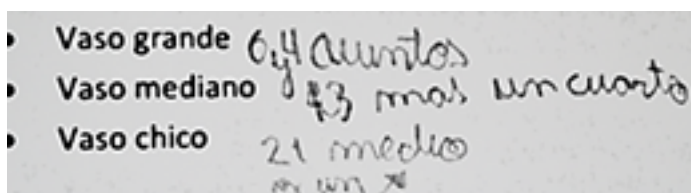 • Vaso grande 6 y 4 cuuntos
• Vaso mediano 3 mas un cuarto
• Vaso chico 21 medio
un